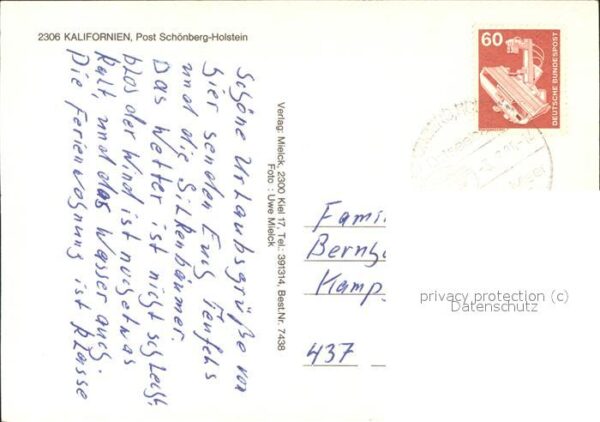 2306 KALIFORNIEN, Post Schönberg-Holstein
Schöne Urlaubsgrüße von
hier senden Euch Teufels
und die Silkenbäumer.
Das Wetter ist nicht schlecht,
blos der Wind ist noch etwas
kalt, und das Wasser auch.
Die Ferienwohnung ist klasse
Verlag: Mielck, 2300 Kiel 17, Tel.: 391314, Best.Nr. 7438
Foto: Uwe Mielck
60
DEUTSCHE BUNDESPOST
Famil
Bernh
Kamp
437
privacy protection (c)
Datenschutz